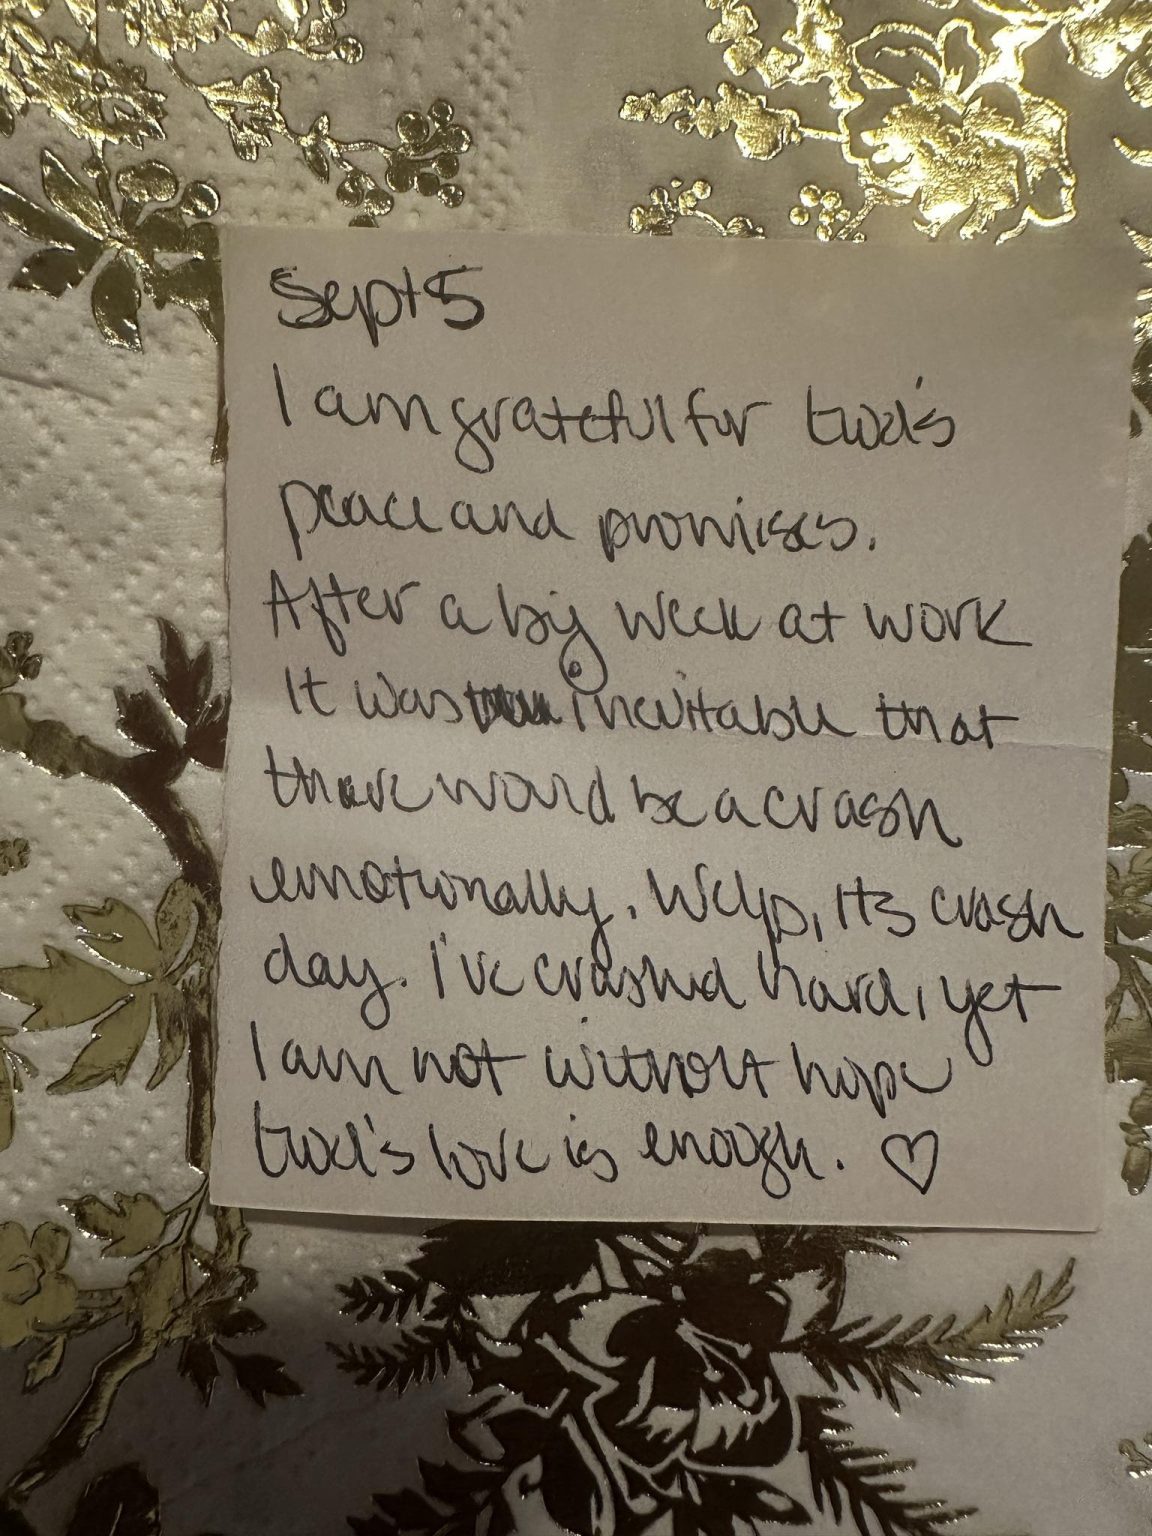 Sept 5
I am grateful for God's
peace and promises.
After a big week at work
It was inevitable that
there would be a crash
emotionally. Welp, its crash
day. I've crashed hard, yet
I am not without hope
God's love is enough. ♡